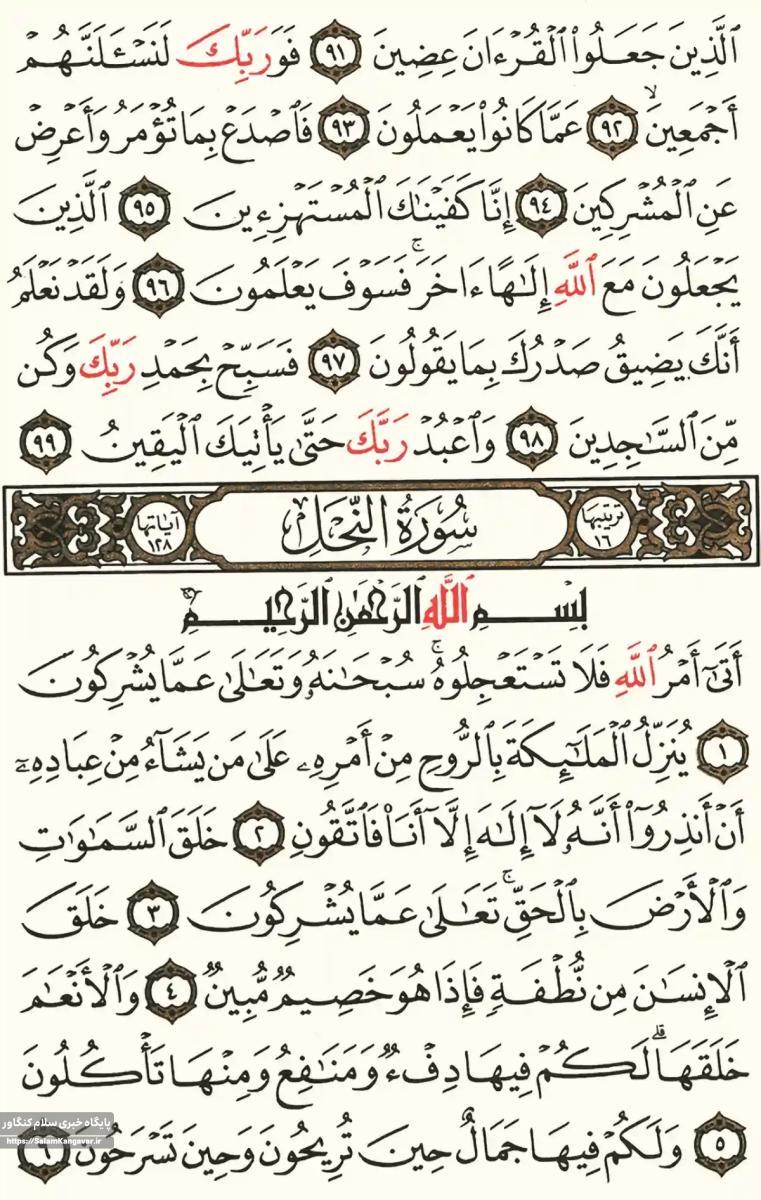 الَّذِينَ جَعَلُوا۟ ٱلْقُرْءَانَ عِضِينَ ٩١ فَوَرَبِّكَ لَنَسْـَٔلَنَّهُمْ
أَجْمَعِينَ ٩٢ عَمَّا كَانُوا۟ يَعْمَلُونَ ٩٣ فَٱصْدَعْ بِمَا تُؤْمَرُ وَأَعْرِضْ
عَنِ ٱلْمُشْرِكِينَ ٩٤ إِنَّا كَفَيْنَٰكَ ٱلْمُسْتَهْزِءِينَ ٩٥ ٱلَّذِينَ
يَجْعَلُونَ مَعَ ٱللَّهِ إِلَٰهًا ءَاخَرَ ۚ فَسَوْفَ يَعْلَمُونَ ٩٦ وَلَقَدْ نَعْلَمُ
أَنَّكَ يَضِيقُ صَدْرُكَ بِمَا يَقُولُونَ ٩٧ فَسَبِّحْ بِحَمْدِ رَبِّكَ وَكُن
مِّنَ ٱلسَّٰجِدِينَ ٩٨ وَٱعْبُدْ رَبَّكَ حَتَّىٰ يَأْتِيَكَ ٱلْيَقِينُ ٩٩
ترتيبها ١٦ سُورَةُ النَّحْلِ آياتها ١٢٨
بِسْمِ ٱللَّهِ ٱلرَّحْمَٰنِ ٱلرَّحِيمِ
أَتَىٰٓ أَمْرُ ٱللَّهِ فَلَا تَسْتَعْجِلُوهُ ۚ سُبْحَٰنَهُۥ وَتَعَٰلَىٰ عَمَّا يُشْرِكُونَ
١ يُنَزِّلُ ٱلْمَلَٰٓئِكَةَ بِٱلرُّوحِ مِنْ أَمْرِهِۦ عَلَىٰ مَن يَشَآءُ مِنْ عِبَادِهِۦٓ
أَنْ أَنذِرُوٓا۟ أَنَّهُۥ لَآ إِلَٰهَ إِلَّآ أَنَا۠ فَٱتَّقُونِ ٢ خَلَقَ ٱلسَّمَٰوَٰتِ
وَٱلْأَرْضَ بِٱلْحَقِّ ۚ تَعَٰلَىٰ عَمَّا يُشْرِكُونَ ٣ خَلَقَ
ٱلْإِنسَٰنَ مِن نُّطْفَةٍ فَإِذَا هُوَ خَصِيمٌ مُّبِينٌ ٤ وَٱلْأَنْعَٰمَ
خَلَقَهَا ۗ لَكُمْ فِيهَا دِفْءٌ وَمَنَٰفِعُ وَمِنْهَا تَأْكُلُونَ
٥ وَلَكُمْ فِيهَا جَمَالٌ حِينَ تُرِيحُونَ وَحِينَ تَسْرَحُونَ ٦
پایگاه خبری سلام کنگاور
https://SalamKangavar.ir